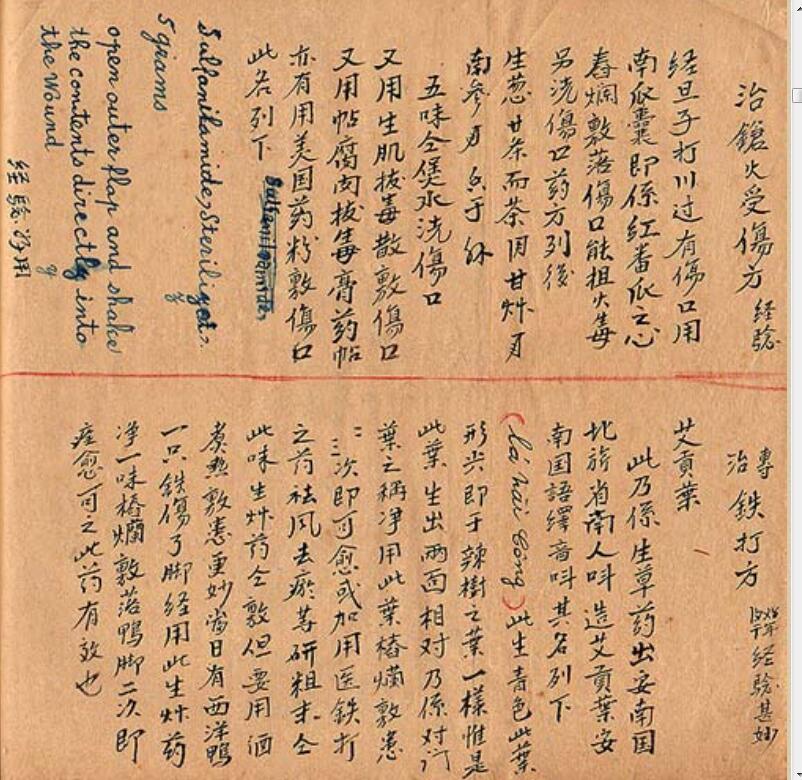 治鎗火受傷方 经驗
经旦子打川过有傷口用
南瓜囊即係紅番瓜之心
舂爛敷落傷口能抯火毒
另洗傷口药方列後
生葱 甘茶而茶 甘艸
南參
五味仝煲水洗傷口
又用生肌拔毒散敷傷口
又用帖腐肉拔毒膏药帖
亦有用美国药粉敷傷口
此名列下 Sulfanilamide,
Sulfanilamide, Sterilized.
5 grams
open outer flap and shake
the contents directly into
the Wound
经驗 用
專治鉄打方 经驗甚妙
艾貢葉
此乃係生草药出安南国
北旂省南人呌造艾貢葉安
南国語繹音呌其名列下
(lá hải Công) 此生青色此葉
形尖即于辣樹之葉一樣惟是
此葉生出两面相对乃係对
葉之稱净用此葉樁爛敷患
二三次即可愈或加用医鉄打
之药祛风去瘀等研粗末仝
此味生艸药仝敷但要用酒
煮热敷患更妙當日有西洋鴨
一只鉄傷了脚经用此生艸药
净一味樁爛敷落鴨脚二次即
痊愈可之此药有效也